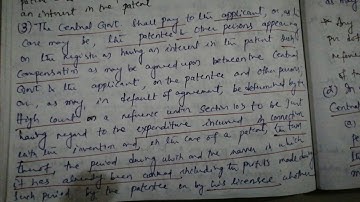 an interest in the patent
(3) The Central Govt. shall pay to the applicant, or, as the
case may be, the patentee & other persons appearing
on the register as having an interest in the patent such
compensation as may be agreed upon between the Central
Govt & the applicant, or the patentee and other persons;
or, as may, in default of agreement, be determined by the
High Court on a reference under Section 103 to be just
having regard to the expenditure incurred in connection
with the invention and, in the case of a patent, the term
thereof, the period during which and the manner in which
it has already been worked (including the profits made during
such period by the patentee or by his licensee whether